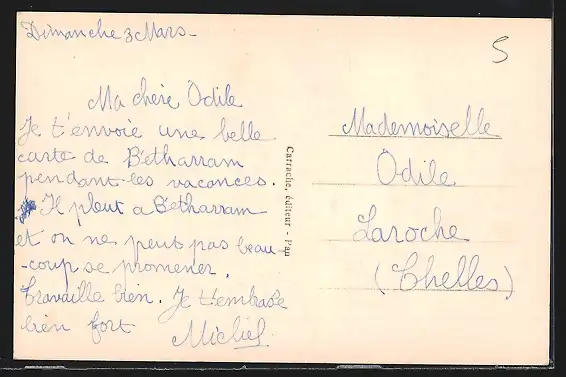 Dimanche 3 Mars-
S
Ma chère Odile
Je t'envoie une belle
carte de Bétharram
pendant les vacances.
Il pleut a Bétharram
et on ne peut pas beau-
-coup se promener.
Travaille bien. Je t'embrase
bien fort Michel
Carrache, éditeur - Pau
Mademoiselle
Odile
Laroche
(Chelles)